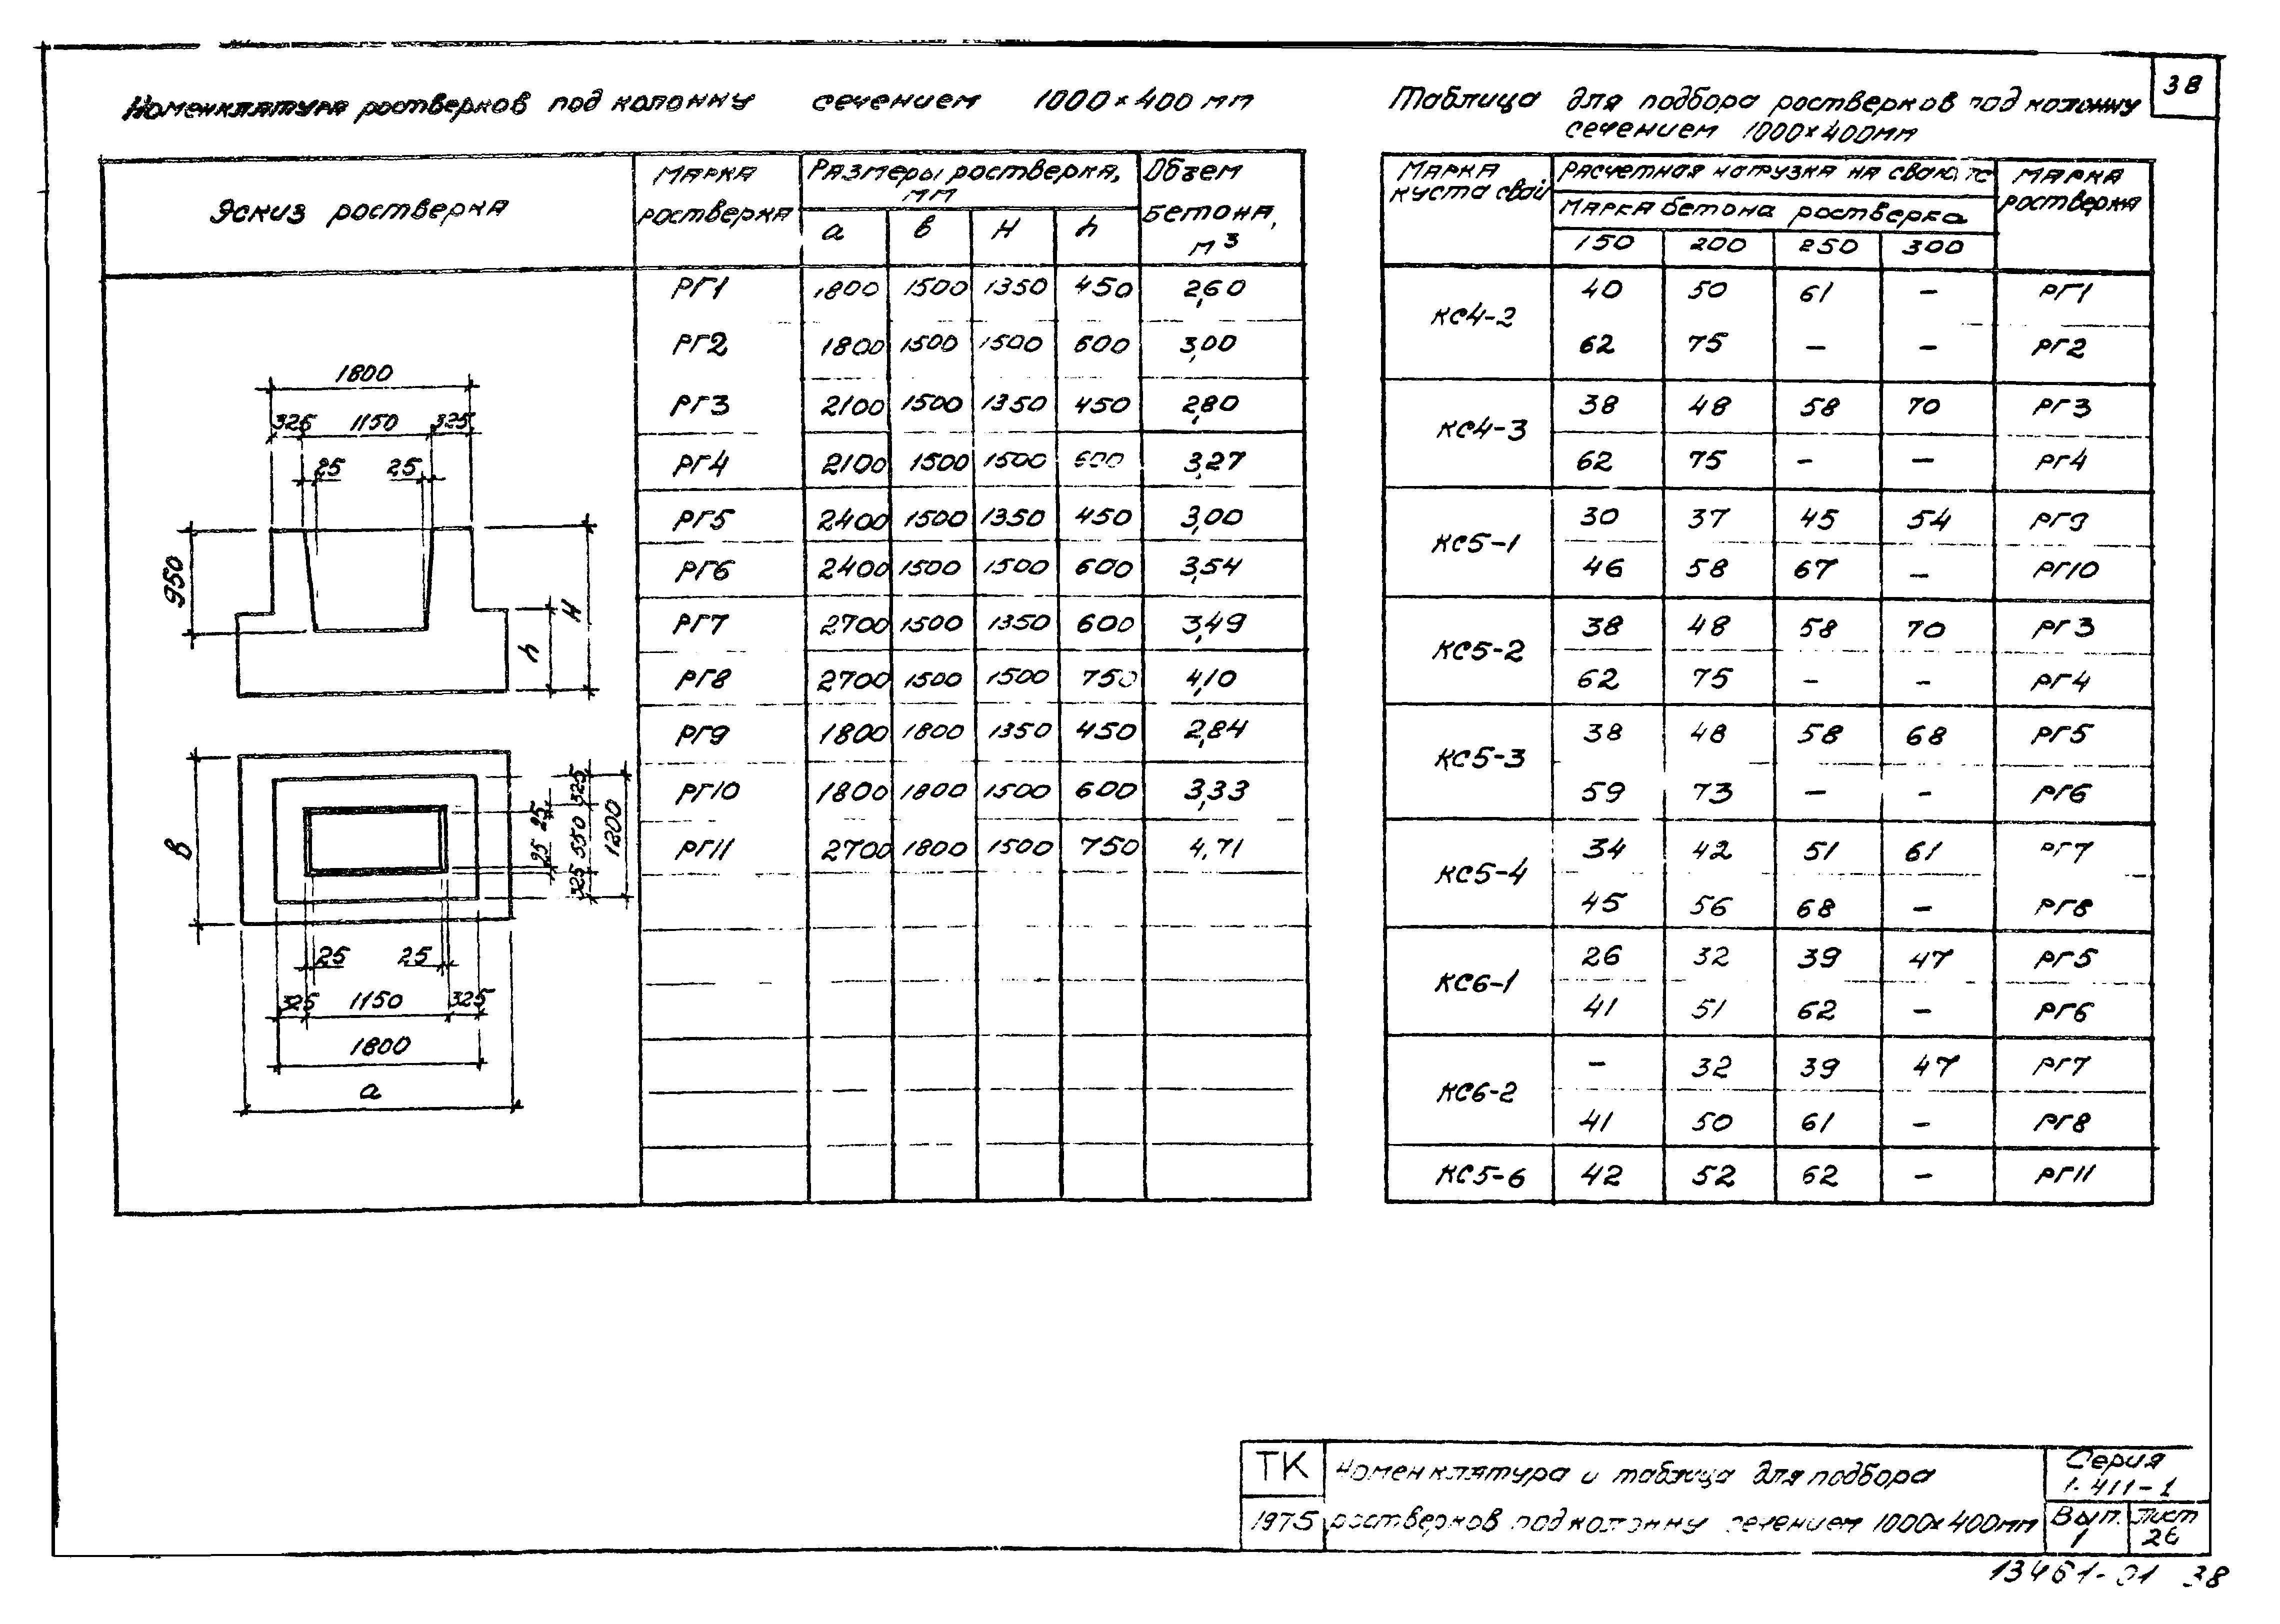 38
Номенклатура ростверков под колонну сечением 1000×400 мм
Эскиз ростверка
Марка ростверка
Размеры ростверка, мм
Объем бетона, м³
а в H h
РГ1 1800 1500 1350 450 2,60
РГ2 1800 1500 1500 600 3,00
РГ3 2100 1500 1350 450 2,80
РГ4 2100 1500 1500 600 3,27
РГ5 2400 1500 1350 450 3,00
РГ6 2400 1500 1500 600 3,54
РГ7 2700 1500 1350 600 3,49
РГ8 2700 1500 1500 750 4,10
РГ9 1800 1800 1350 450 2,84
РГ10 1800 1800 1500 600 3,33
РГ11 2700 1800 1500 750 4,71
1800
325 1150 325
25 25
950
h
H
в
25 25
325 550 325
1200
25 25
325 1150 325
1800
а
Таблица для подбора ростверков под колонну
сечением 1000×400мм
Марка куста свай
Расчетная нагрузка на сваю, тс
Марка бетона ростверка
150 200 250 300
Марка ростверка
КС4-2
40 50 61 – РГ1
62 75 – – РГ2
КС4-3
38 48 58 70 РГ3
62 75 – – РГ4
КС5-1
30 37 45 54 РГ9
46 58 67 – РГ10
КС5-2
38 48 58 70 РГ3
62 75 – – РГ4
КС5-3
38 48 58 68 РГ5
59 73 – – РГ6
КС5-4
34 42 51 61 РГ7
45 56 68 – РГ8
КС6-1
26 32 39 47 РГ5
41 51 62 – РГ6
КС6-2
– 32 39 47 РГ7
41 50 61 – РГ8
КС5-6 42 52 62 – РГ11
ТК
1975
Номенклатура и таблица для подбора
ростверков под колонну сечением 1000×400мм
Серия
1.411-1
Вып. Лист
1 26
13461-01 38